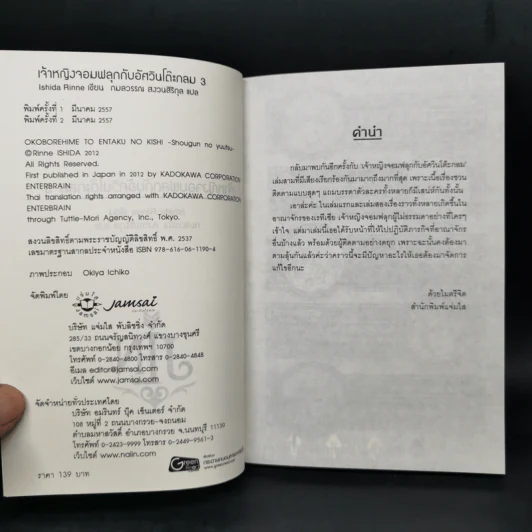 เจ้าหญิงจอมฟลุกกับอัศวินโต๊ะกลม 3
Ishida Rinne เขียน กมลวรรณ สงวนสิริกุล แปล
พิมพ์ครั้งที่ 1 มีนาคม 2557
พิมพ์ครั้งที่ 2 มีนาคม 2557
OKOBOREHIME TO ENTAKU NO KISHI -Shougun no yuutsu-
©Rinne ISHIDA 2012
All Rights Reserved.
First published in Japan in 2012 by KADOKAWA CORPORATION
ENTERBRAIN
Thai translation rights arranged with KADOKAWA CORPORATION
ENTERBRAIN
through Tuttle-Mori Agency, Inc., Tokyo.
สงวนลิขสิทธิ์ตามพระราชบัญญัติลิขสิทธิ์ พ.ศ. 2537
เลขมาตรฐานสากลประจำหนังสือ ISBN 978-616-06-1190-4
ภาพประกอบ Okiya Ichiko
จัดพิมพ์โดย
jamsai
บริษัท แจ่มใส พับลิชชิ่ง จำกัด
285/33 ถนนจรัญสนิทวงศ์ แขวงบางขุนศรี
เขตบางกอกน้อย กรุงเทพฯ 10700
โทรศัพท์ 0-2840-4800 โทรสาร 0-2840-4848
อีเมล editor@jamsai.com
เว็บไซต์ www.jamsai.com
จัดจำหน่ายทั่วประเทศโดย
บริษัท อมรินทร์ บุ๊ค เซ็นเตอร์ จำกัด
108 หมู่ที่ 2 ถนนบางกรวย-จงถนอม
ตำบลมหาสวัสดิ์ อำเภอบางกรวย จ.นนทบุรี 11130
โทรศัพท์ 0-2423-9999 โทรสาร 0-2449-9561-3
เว็บไซต์ www.naiin.com
ราคา 139 บาท
Green
คำนำ
กลับมาพบกันอีกครั้งกับ 'เจ้าหญิงจอมฟลุกกับอัศวินโต๊ะกลม'
เล่มสามที่มีเสียงเรียกร้องกันมามากถึงมากที่สุด เพราะเนื้อเรื่องชวน
ติดตามแบบสุดๆ แถมบรรดาตัวละครทั้งหลายก็มีเสน่ห์กันทั้งนั้น
เอาล่ะค่ะ ในเล่มแรกและเล่มสองเรื่องราวทั้งหลายเกิดขึ้นใน
อาณาจักรของเรทีเชีย เจ้าหญิงจอมฟลุกผู้ไม่ธรรมดาอย่างที่ใครๆ
เข้าใจ แต่มาเล่มนี้เธอได้รับหน้าที่ให้ไปปฏิบัติภารกิจที่อาณาจักร
อื่นบ้างแล้ว พร้อมด้วยผู้ติดตามอย่างดยุก เพราะฉะนั้นคงต้องมา
ตามลุ้นกันแล้วค่ะว่าคราวนี้จะมีปัญหาอะไรให้เธอต้องมาจัดการ
แก้ไขอีกนะ
ด้วยไมตรีจิต
สำนักพิมพ์แจ่มใส